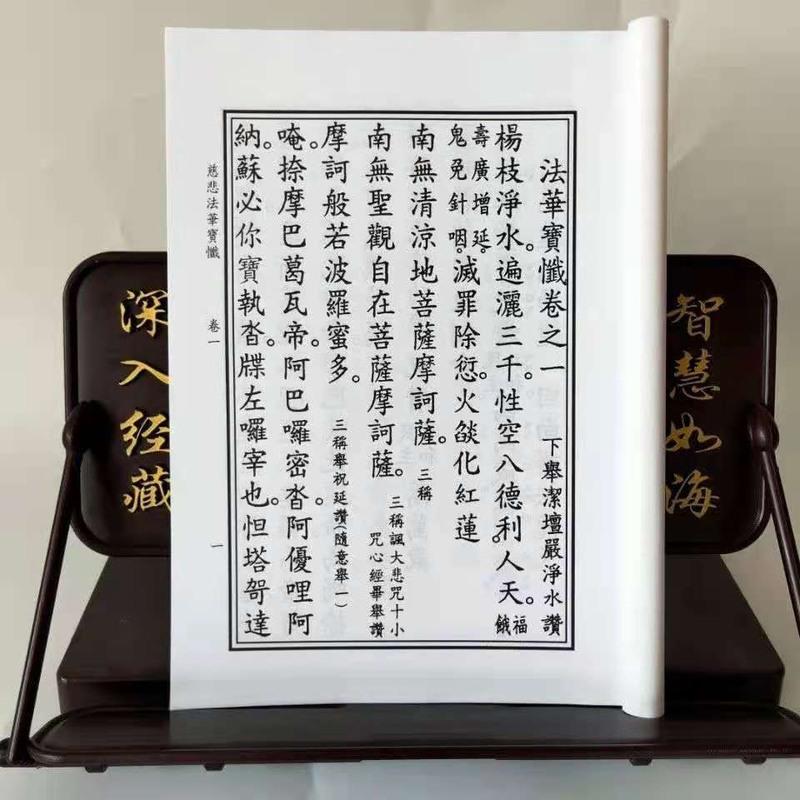 法華寶懺卷之一 下舉潔壇嚴淨水讚
楊枝淨水。遍灑三千。性空八德利人天。福
壽廣增延。餓
鬼免針咽。滅罪除愆。火燄化紅蓮。
南無清涼地菩薩摩訶薩。三稱
南無聖觀自在菩薩摩訶薩。三稱諷大悲咒十小
咒心經畢舉讚
摩訶般若波羅蜜多。三稱舉祝延讚(隨意舉一)
唵。捺摩巴葛瓦帝。阿巴囉密沓。阿優哩阿
納。蘇必你寶執沓。牒左囉宰也。怛塔哿達
慈悲法華寶懺 卷一 一
智慧如海
深入经藏